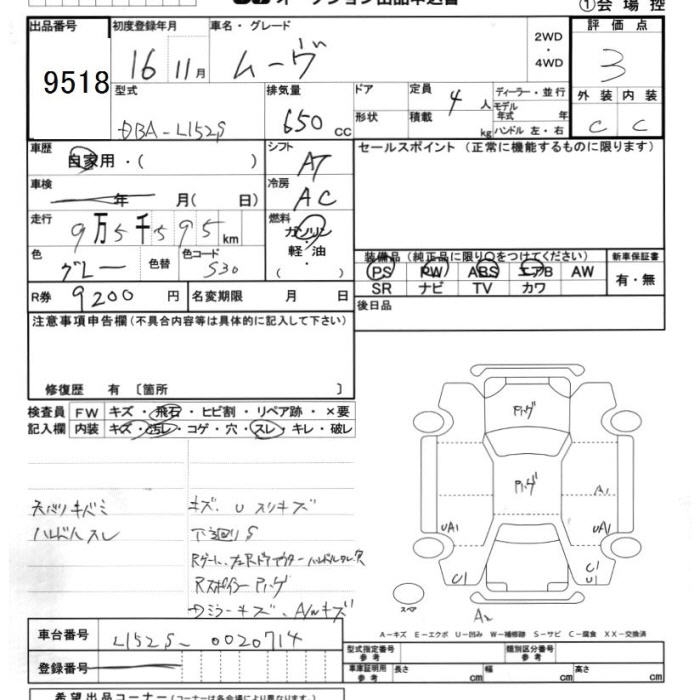 ①会場控
出品番号
9518
初度登録年月
16 11月
車名・グレード
ムーヴ
2WD
・
4WD
評価点
3
外装 内装
C C
型式
DBA-L152S
排気量
650 cc
ドア
形状
定員 4人
積載 kg
ディーラー・並行
モデル
年式 年
ハンドル 左・右
車歴
自家用・( )
シフト
AT
車検
年 月( 日)
冷房
AC
走行
9万5千595km
燃料
ガソリン
・
軽・油
( )
色
グレー
色替
色コード
S30
R券 9200円
名変期限 月 日
セールスポイント(正常に機能するものに限ります)
装備品(純正品に限り○をつけてください)
PS PW ABS エアB AW
SR ナビ TV カワ
新車保証書
有・無
後日品
注意事項申告欄(不具合内容等は具体的に記入して下さい)
修復歴 有 〔箇所 〕
検査員
記入欄
FW キズ・飛石・ヒビ割・リペア跡・×要
内装 キズ・汚レ・コゲ・穴・スレ・キレ・破レ
天バリキバミ
ハンドルスレ
キズ、U スリキズ
下廻りS
Rスポイラー Pハゲ
ミラーキズ、A/Wキズ
Pハゲ
Pハゲ
A1
UA1
UA1
C1
C1
U1
A2
スペア
A-キズ E-エクボ U-凹み W-補修跡 S-サビ C-腐食 XX-交換済
車台番号 L152S-0020714
登録番号
型式指定番号
参考
類別区分番号
参考
車庫証明用
参考
長さ cm 幅 cm 高さ cm
希望出品コーナー(コーナーは各会場により異なります)